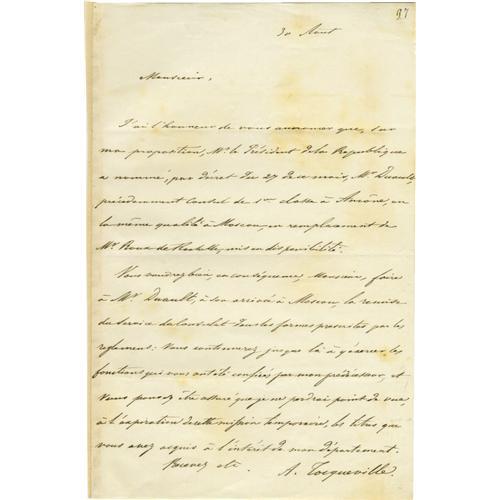 97
30 Aout
Monsieur,
J'ai l'honneur de vous annoncer que, sur
ma proposition, Mr. le Président de la République
a nommé, par décret du 27 de ce mois, Mr. Duault,
précédemment Consul de 1re classe à Ancône, en
la même qualité à Moscou, en remplacement de
Mr. Roux de Rochelle, mis en disponibilité.
Vous voudrez bien, en conséquence, Monsieur, faire
à Mr. Duault, à son arrivée à Moscou, la remise
du service du Consulat dans les formes prescrites par les
réglemens. Vous continuerez jusques là à gérer les
fonctions qui vous ont été confiées par mon prédécesseur, et
vous pouvez être assuré que je ne perdrai point de vue
à l'expiration de cette mission temporaire, les titres que
vous avez acquis à l'intérêt de mon département.
Recevez etc.
A. Tocqueville